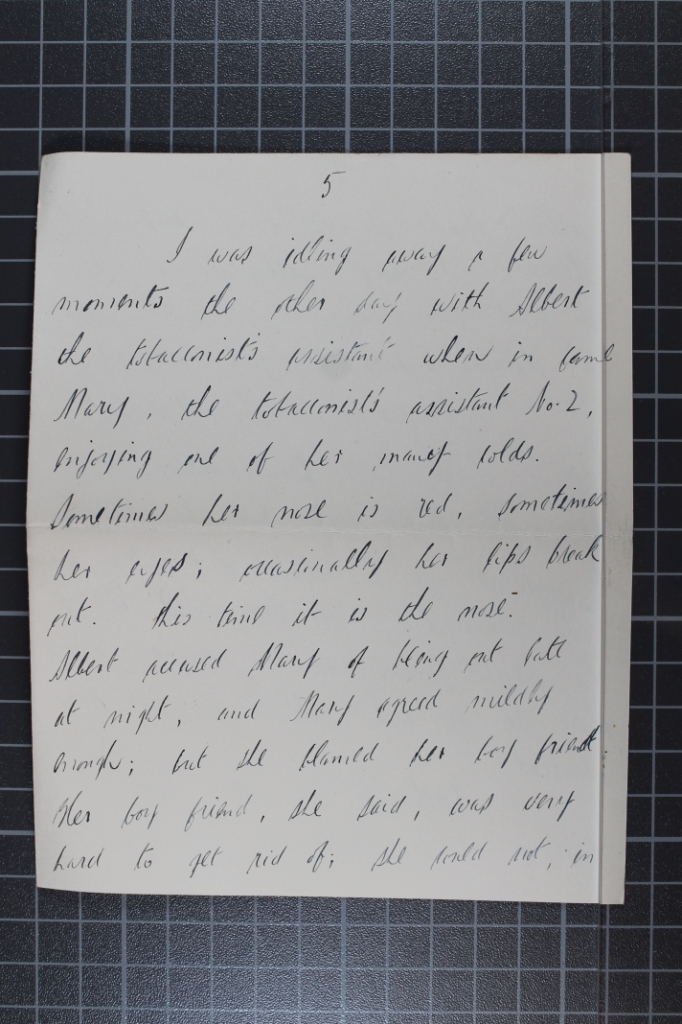 5
I was idling away a few
moments the other day with Albert
the tobacconist's assistant when in came
Mary, the tobacconist's assistant No. 2,
enjoying one of her many colds.
Sometimes her nose is red, sometimes
her eyes; occasionally her lips break
out. This time it is the nose.
Albert accused Mary of being out late
at night, and Mary agreed mildly
enough; but she blamed her boy friend.
Her boy friend, she said, was very
hard to get rid of; she could not, in